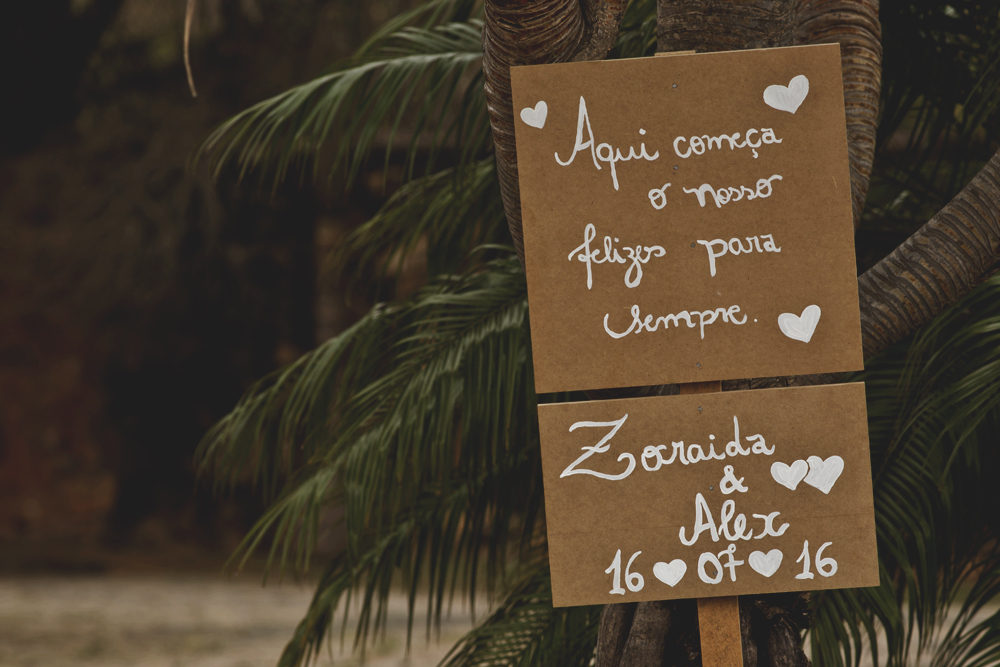 Aqui começa
o nosso
felizes para
sempre.
Zoraida
&
Alex
16 07 16